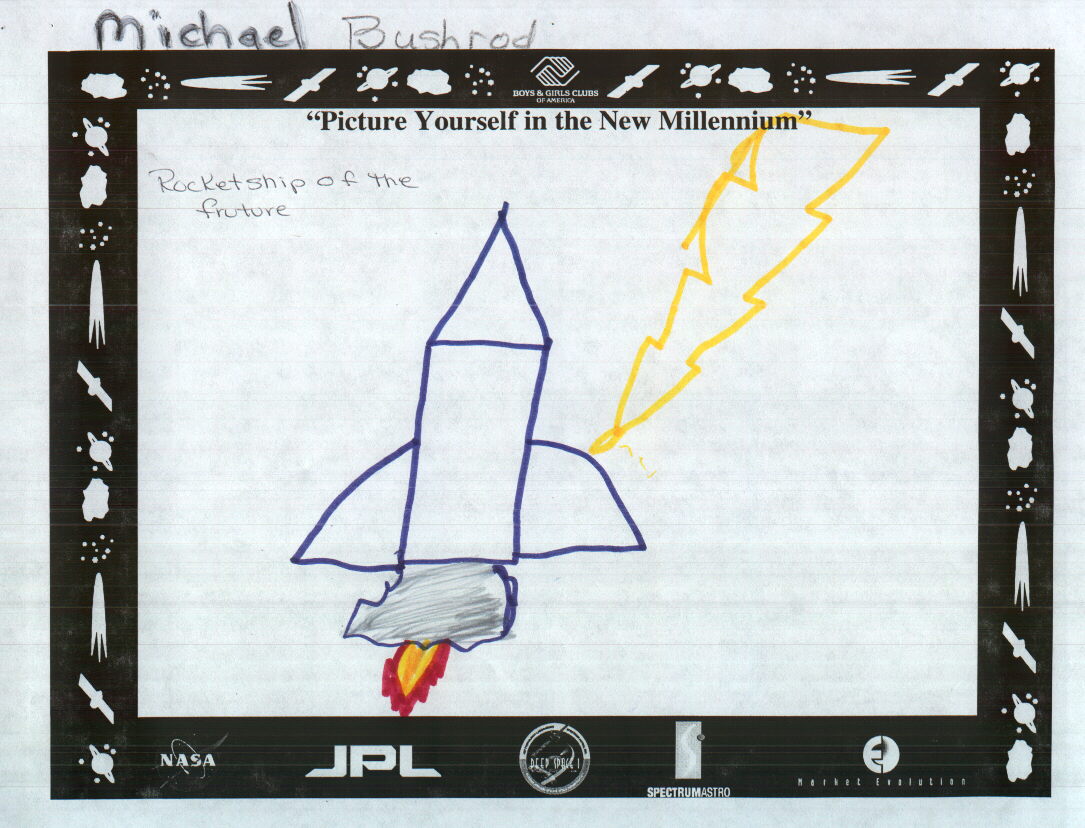 Michael Bushrod
BOYS & GIRLS CLUBS
OF AMERICA
“Picture Yourself in the New Millennium”
Rocketship of the
fruture
NASA
JPL
DEEP SPACE 1
SPECTRUMASTRO
Market Evolution